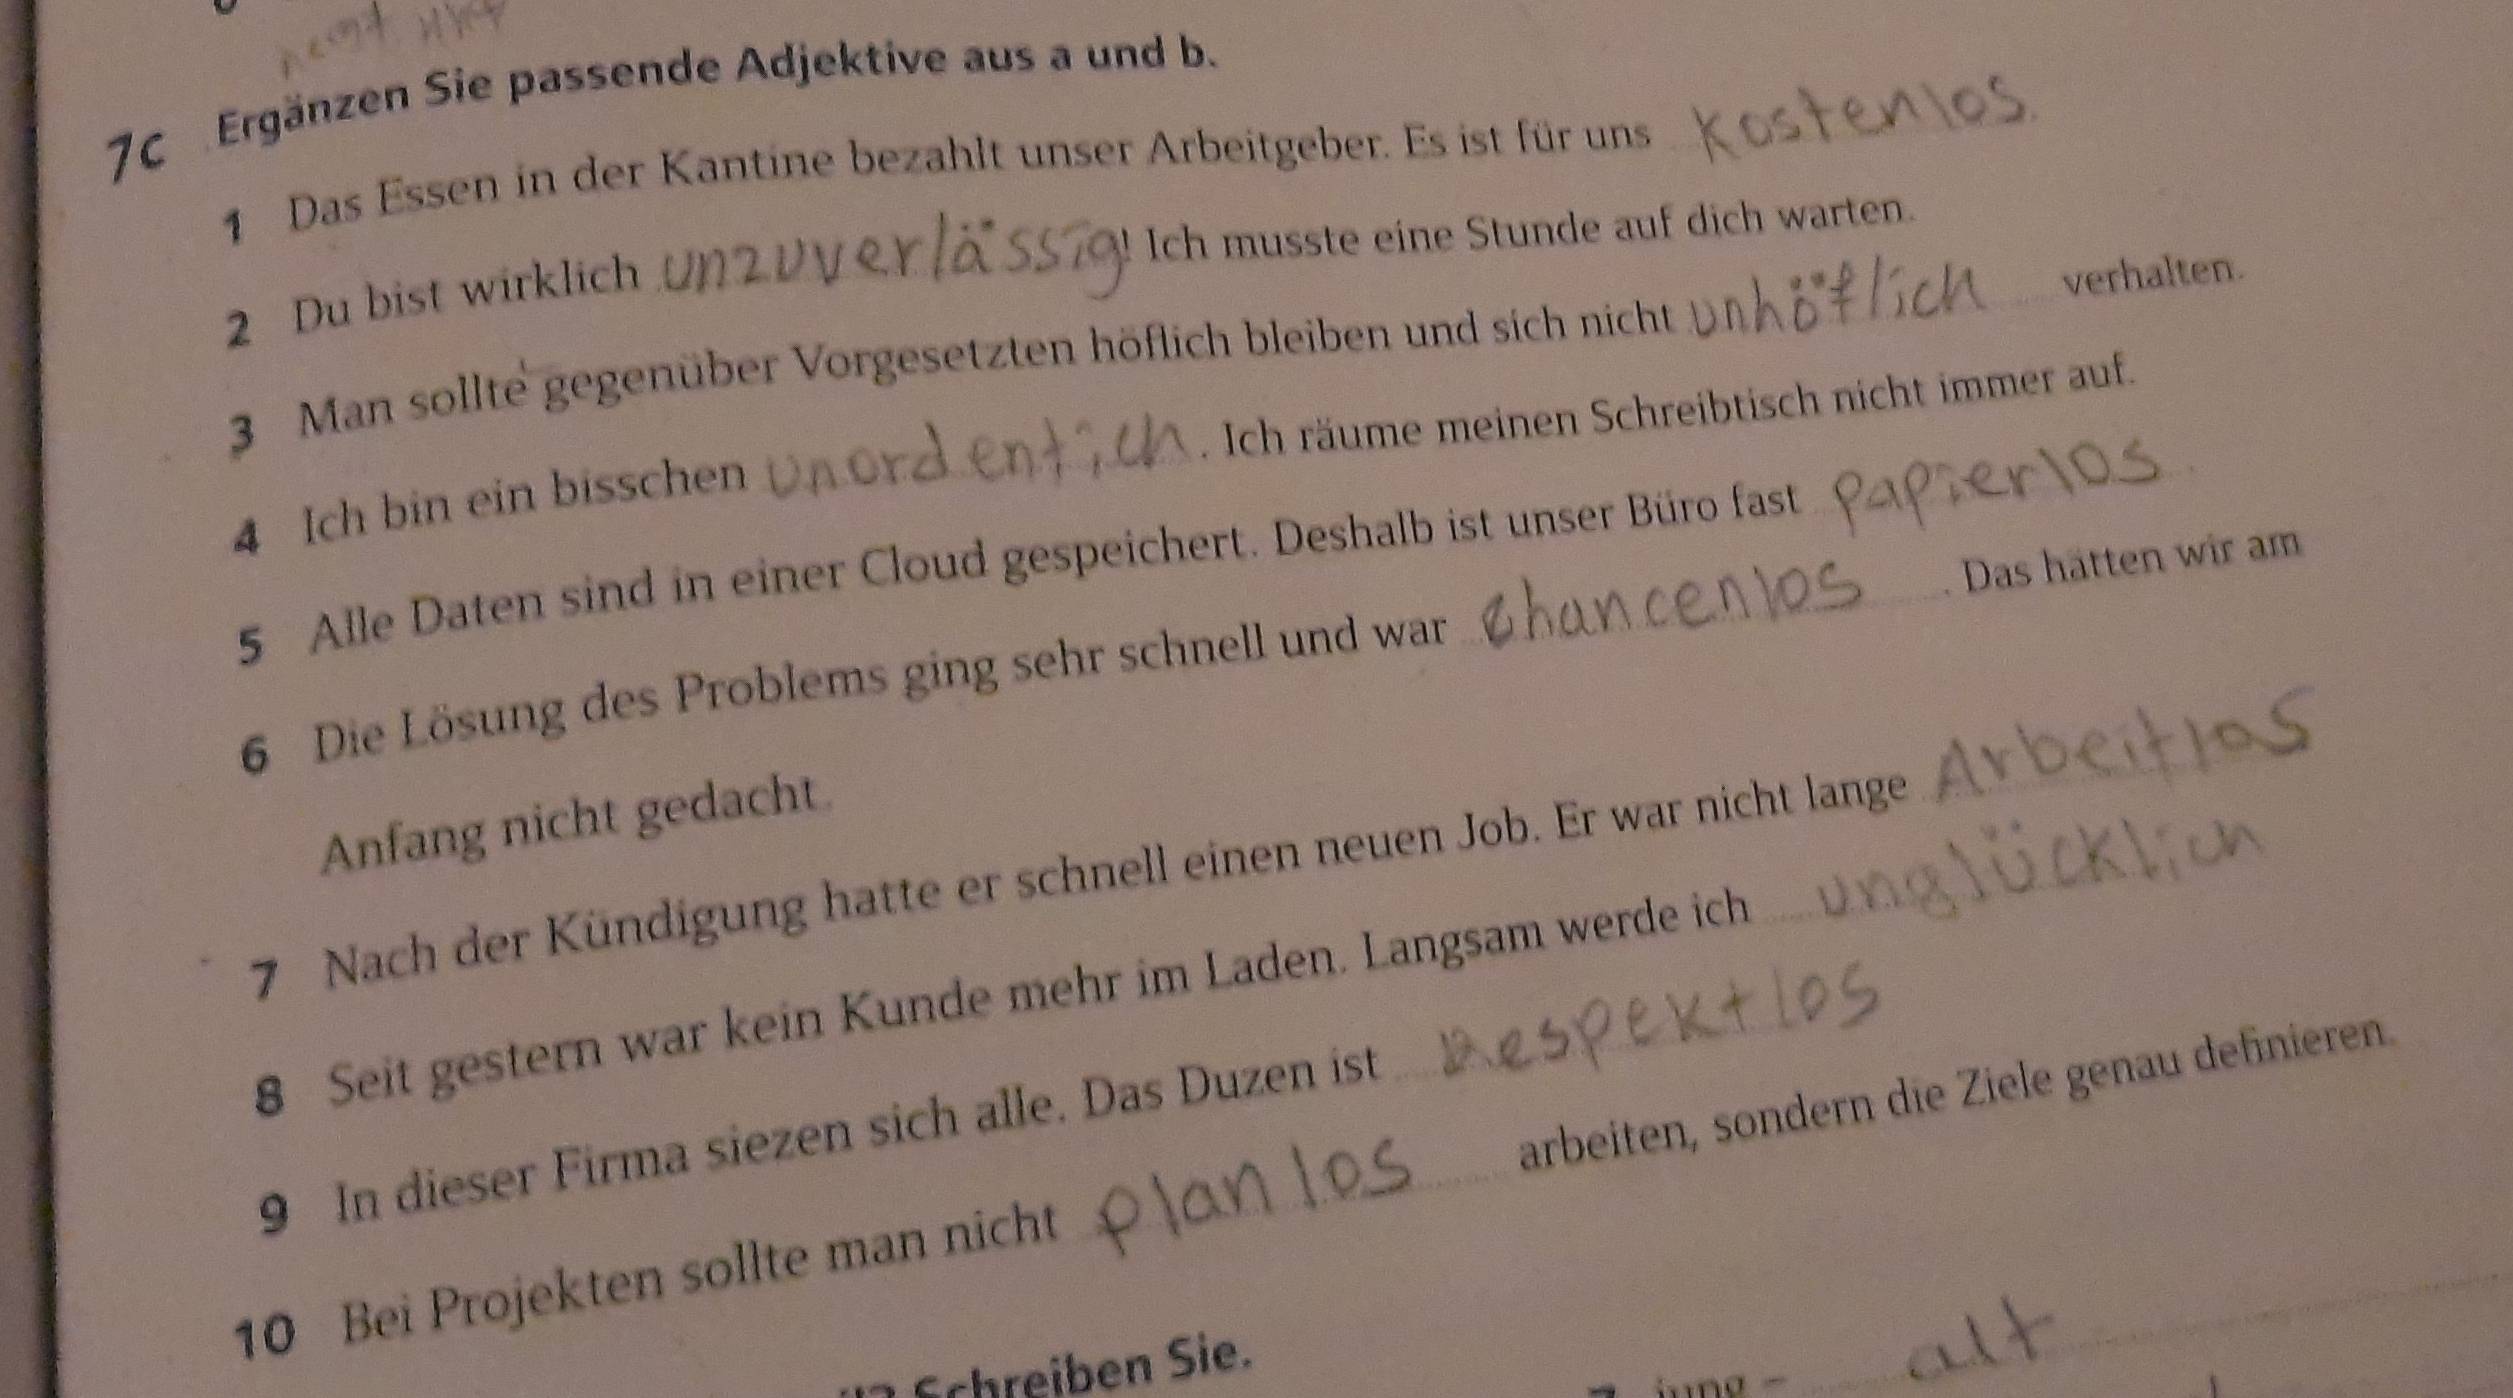 7c Ergänzen Sie passende Adjektive aus a und b.
1 Das Essen in der Kantine bezahlt unser Arbeitgeber. Es ist für uns Kostenlos.
2 Du bist wirklich unzuverlässig! Ich musste eine Stunde auf dich warten.
3 Man sollte gegenüber Vorgesetzten höflich bleiben und sich nicht unhöflich verhalten.
4 Ich bin ein bisschen unordentich. Ich räume meinen Schreibtisch nicht immer auf.
5 Alle Daten sind in einer Cloud gespeichert. Deshalb ist unser Büro fast papierlos.
6 Die Lösung des Problems ging sehr schnell und war chancenlos. Das hätten wir am
Anfang nicht gedacht.
7 Nach der Kündigung hatte er schnell einen neuen Job. Er war nicht lange Arbeitlos
8 Seit gestern war kein Kunde mehr im Laden. Langsam werde ich unglücklich
9 In dieser Firma siezen sich alle. Das Duzen ist Respektlos
10 Bei Projekten sollte man nicht planlos arbeiten, sondern die Ziele genau definieren.
Schreiben Sie.
jung - alt